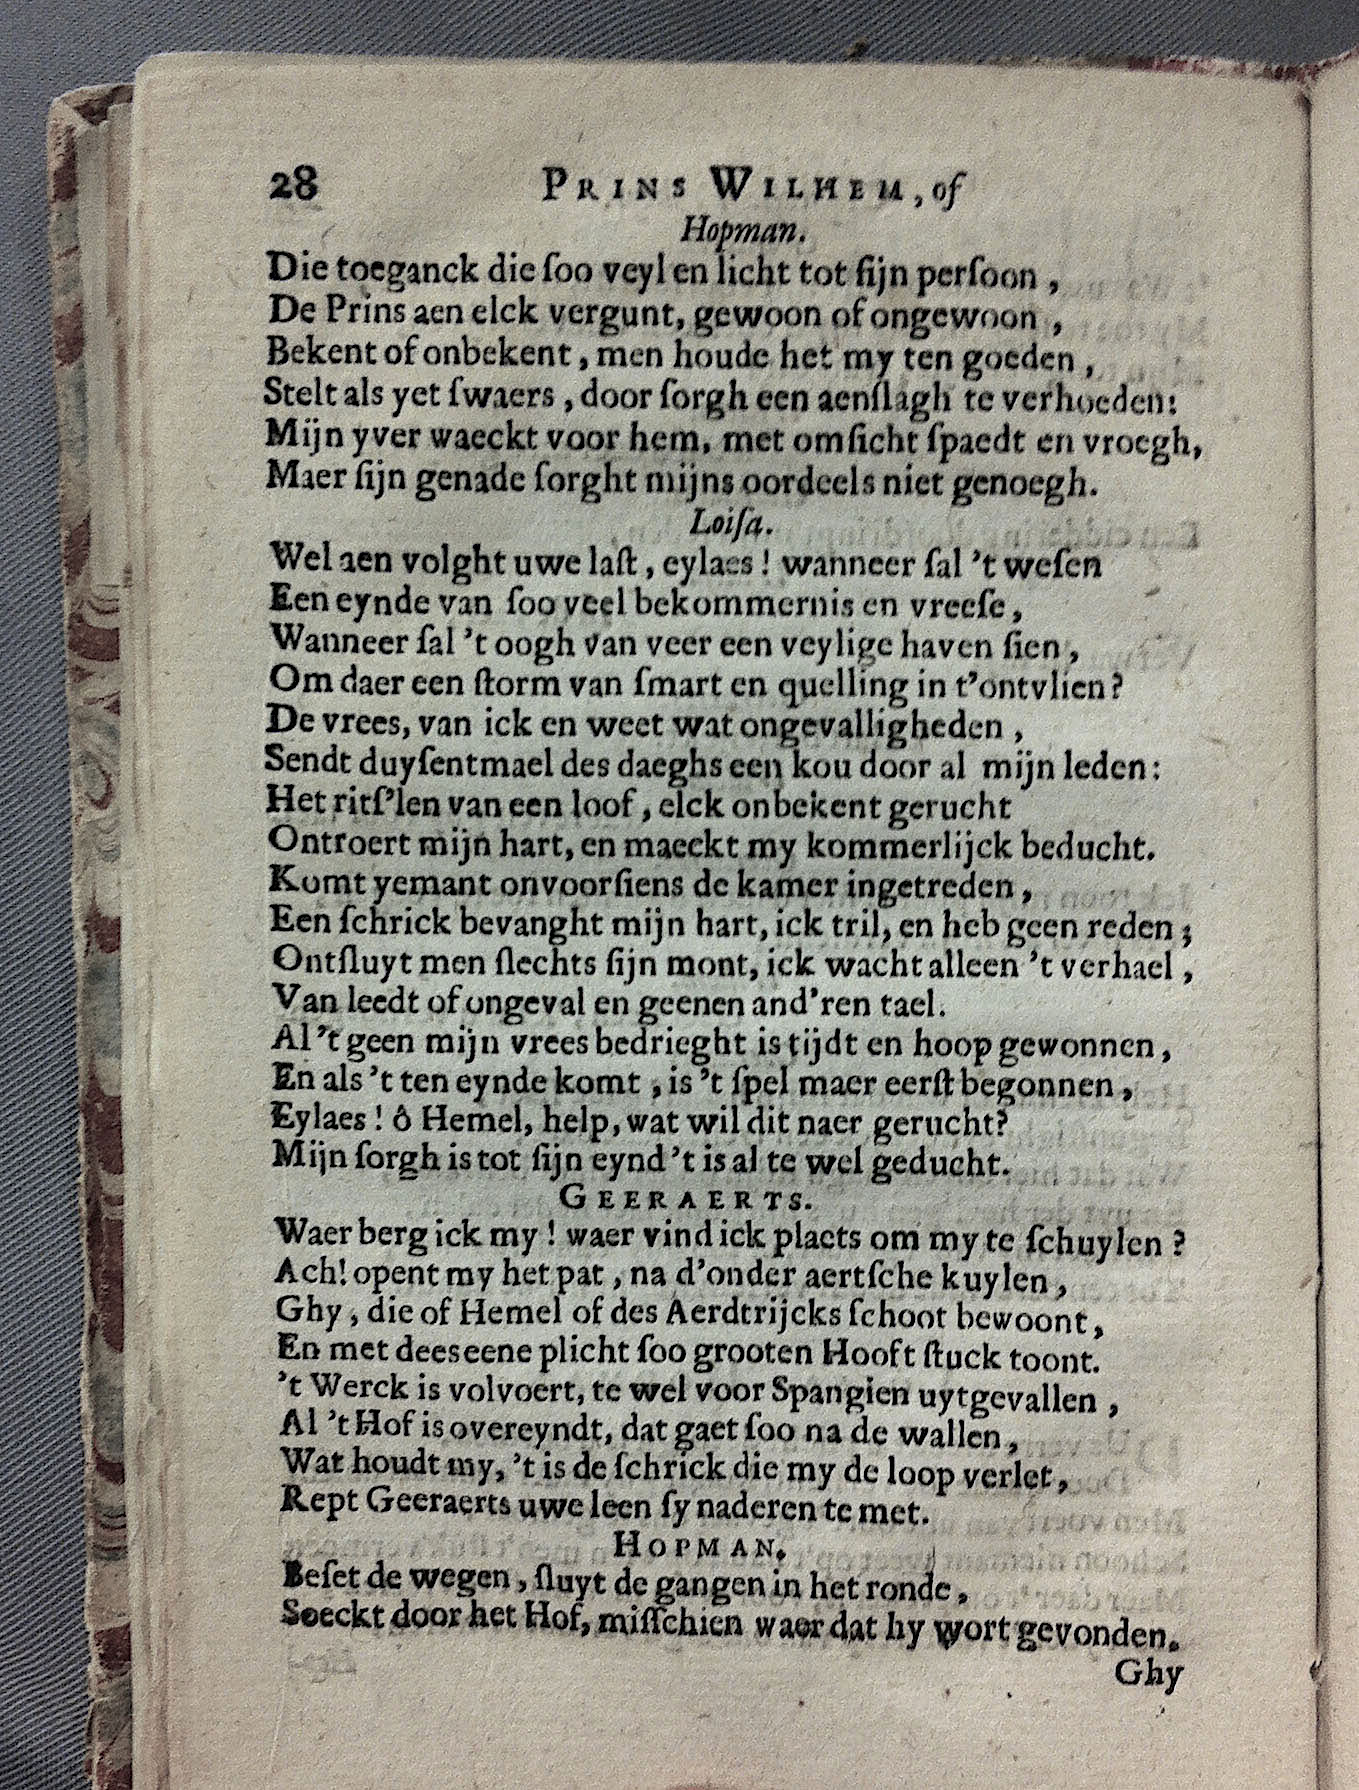 28 PRINS WILHEM, of
Hopman.
Die toeganck die ſoo veyl en licht tot ſijn perſoon,
De Prins aen elck vergunt, gewoon of ongewoon,
Bekent of onbekent, men houde het my ten goeden,
Stelt als yet ſwaers, door ſorgh een aenſlagh te verhoeden:
Mijn yver waeckt voor hem, met omſicht ſpaedt en vroegh,
Maer ſijn genade ſorght mijns oordeels niet genoegh.
Loiſa.
Wel aen volght uwe laſt, eylaes! wanneer ſal 't weſen
Een eynde van ſoo veel bekommernis en vreeſe,
Wanneer ſal 't oogh van veer een veylige haven ſien,
Om daer een ſtorm van ſmart en quelling in t'ontvlien?
De vrees, van ick en weet wat ongevalligheden,
Sendt duyſentmael des daeghs een kou door al mijn leden:
Het ritſ'len van een loof, elck onbekent gerucht
Ontroert mijn hart, en maeckt my kommerlijck beducht.
Komt yemant onvoorſiens de kamer ingetreden,
Een ſchrick bevanght mijn hart, ick tril, en heb geen reden;
Ontſluyt men ſlechts ſijn mont, ick wacht alleen 't verhael,
Van leedt of ongeval en geenen and'ren tael.
Al 't geen mijn vrees bedrieght is tijdt en hoop gewonnen,
En als 't ten eynde komt, is 't ſpel maer eerſt begonnen,
Eylaes! ô Hemel, help, wat wil dit naer gerucht?
Mijn ſorgh is tot ſijn eynd 't is al te wel geducht.
GEERAERTS.
Waer berg ick my! waer vind ick plaets om my te ſchuylen?
Ach! opent my het pat, na d'onder aertſche kuylen,
Ghy, die of Hemel of des Aerdtrijcks ſchoot bewoont,
En met deeseene plicht ſoo grooten Hooft ſtuck toont.
't Werck is volvoert, te wel voor Spangien uytgevallen,
Al 't Hof is overeyndt, dat gaet ſoo na de wallen,
Wat houdt my, 't is de ſchrick die my de loop verlet,
Rept Geeraerts uwe leen ſy naderen te met.
HOPMAN.
Beſet de wegen, ſluyt de gangen in het ronde,
Soeckt door het Hof, miſſchien waer dat hy wort gevonden.
Ghy